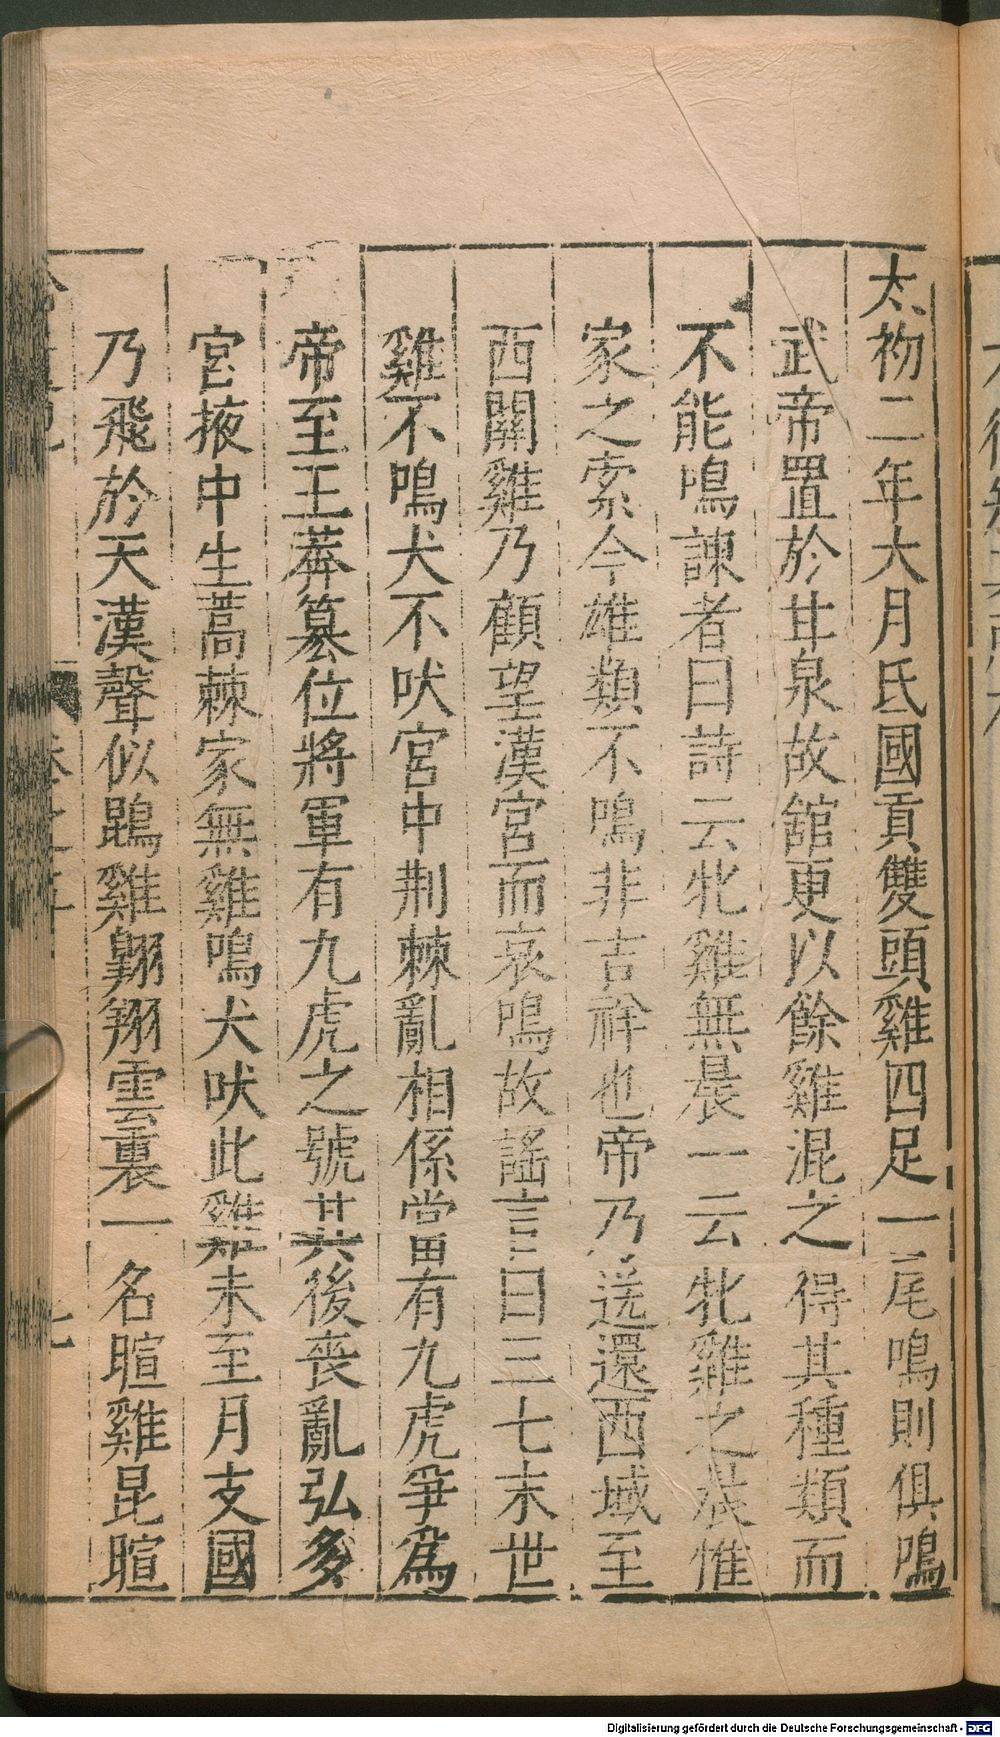 太初二年大月氏國貢雙頭雞四足一尾鳴則俱鳴
武帝置於甘泉故館更以餘雞混之得其種類而
不能鳴諫者曰詩云牝雞無晨一云牝雞之晨惟
家之索今雄類不鳴非吉祥也帝乃送還西域至
西關雞乃顧望漢宮而哀鳴故謠言曰三七末世
雞不鳴犬不吠宮中荆棘亂相係當有九虎爭爲
帝至王莽篡位將軍有九虎之號其後喪亂弘多
宮掖中生蒿棘家無雞鳴犬吠此雞未至月支國
乃飛於天漢聲似鵾雞翺翔雲裏一名暄雞昆暄
Digitalisierung gefördert durch die Deutsche Forschungsgemeinschaft - DFG